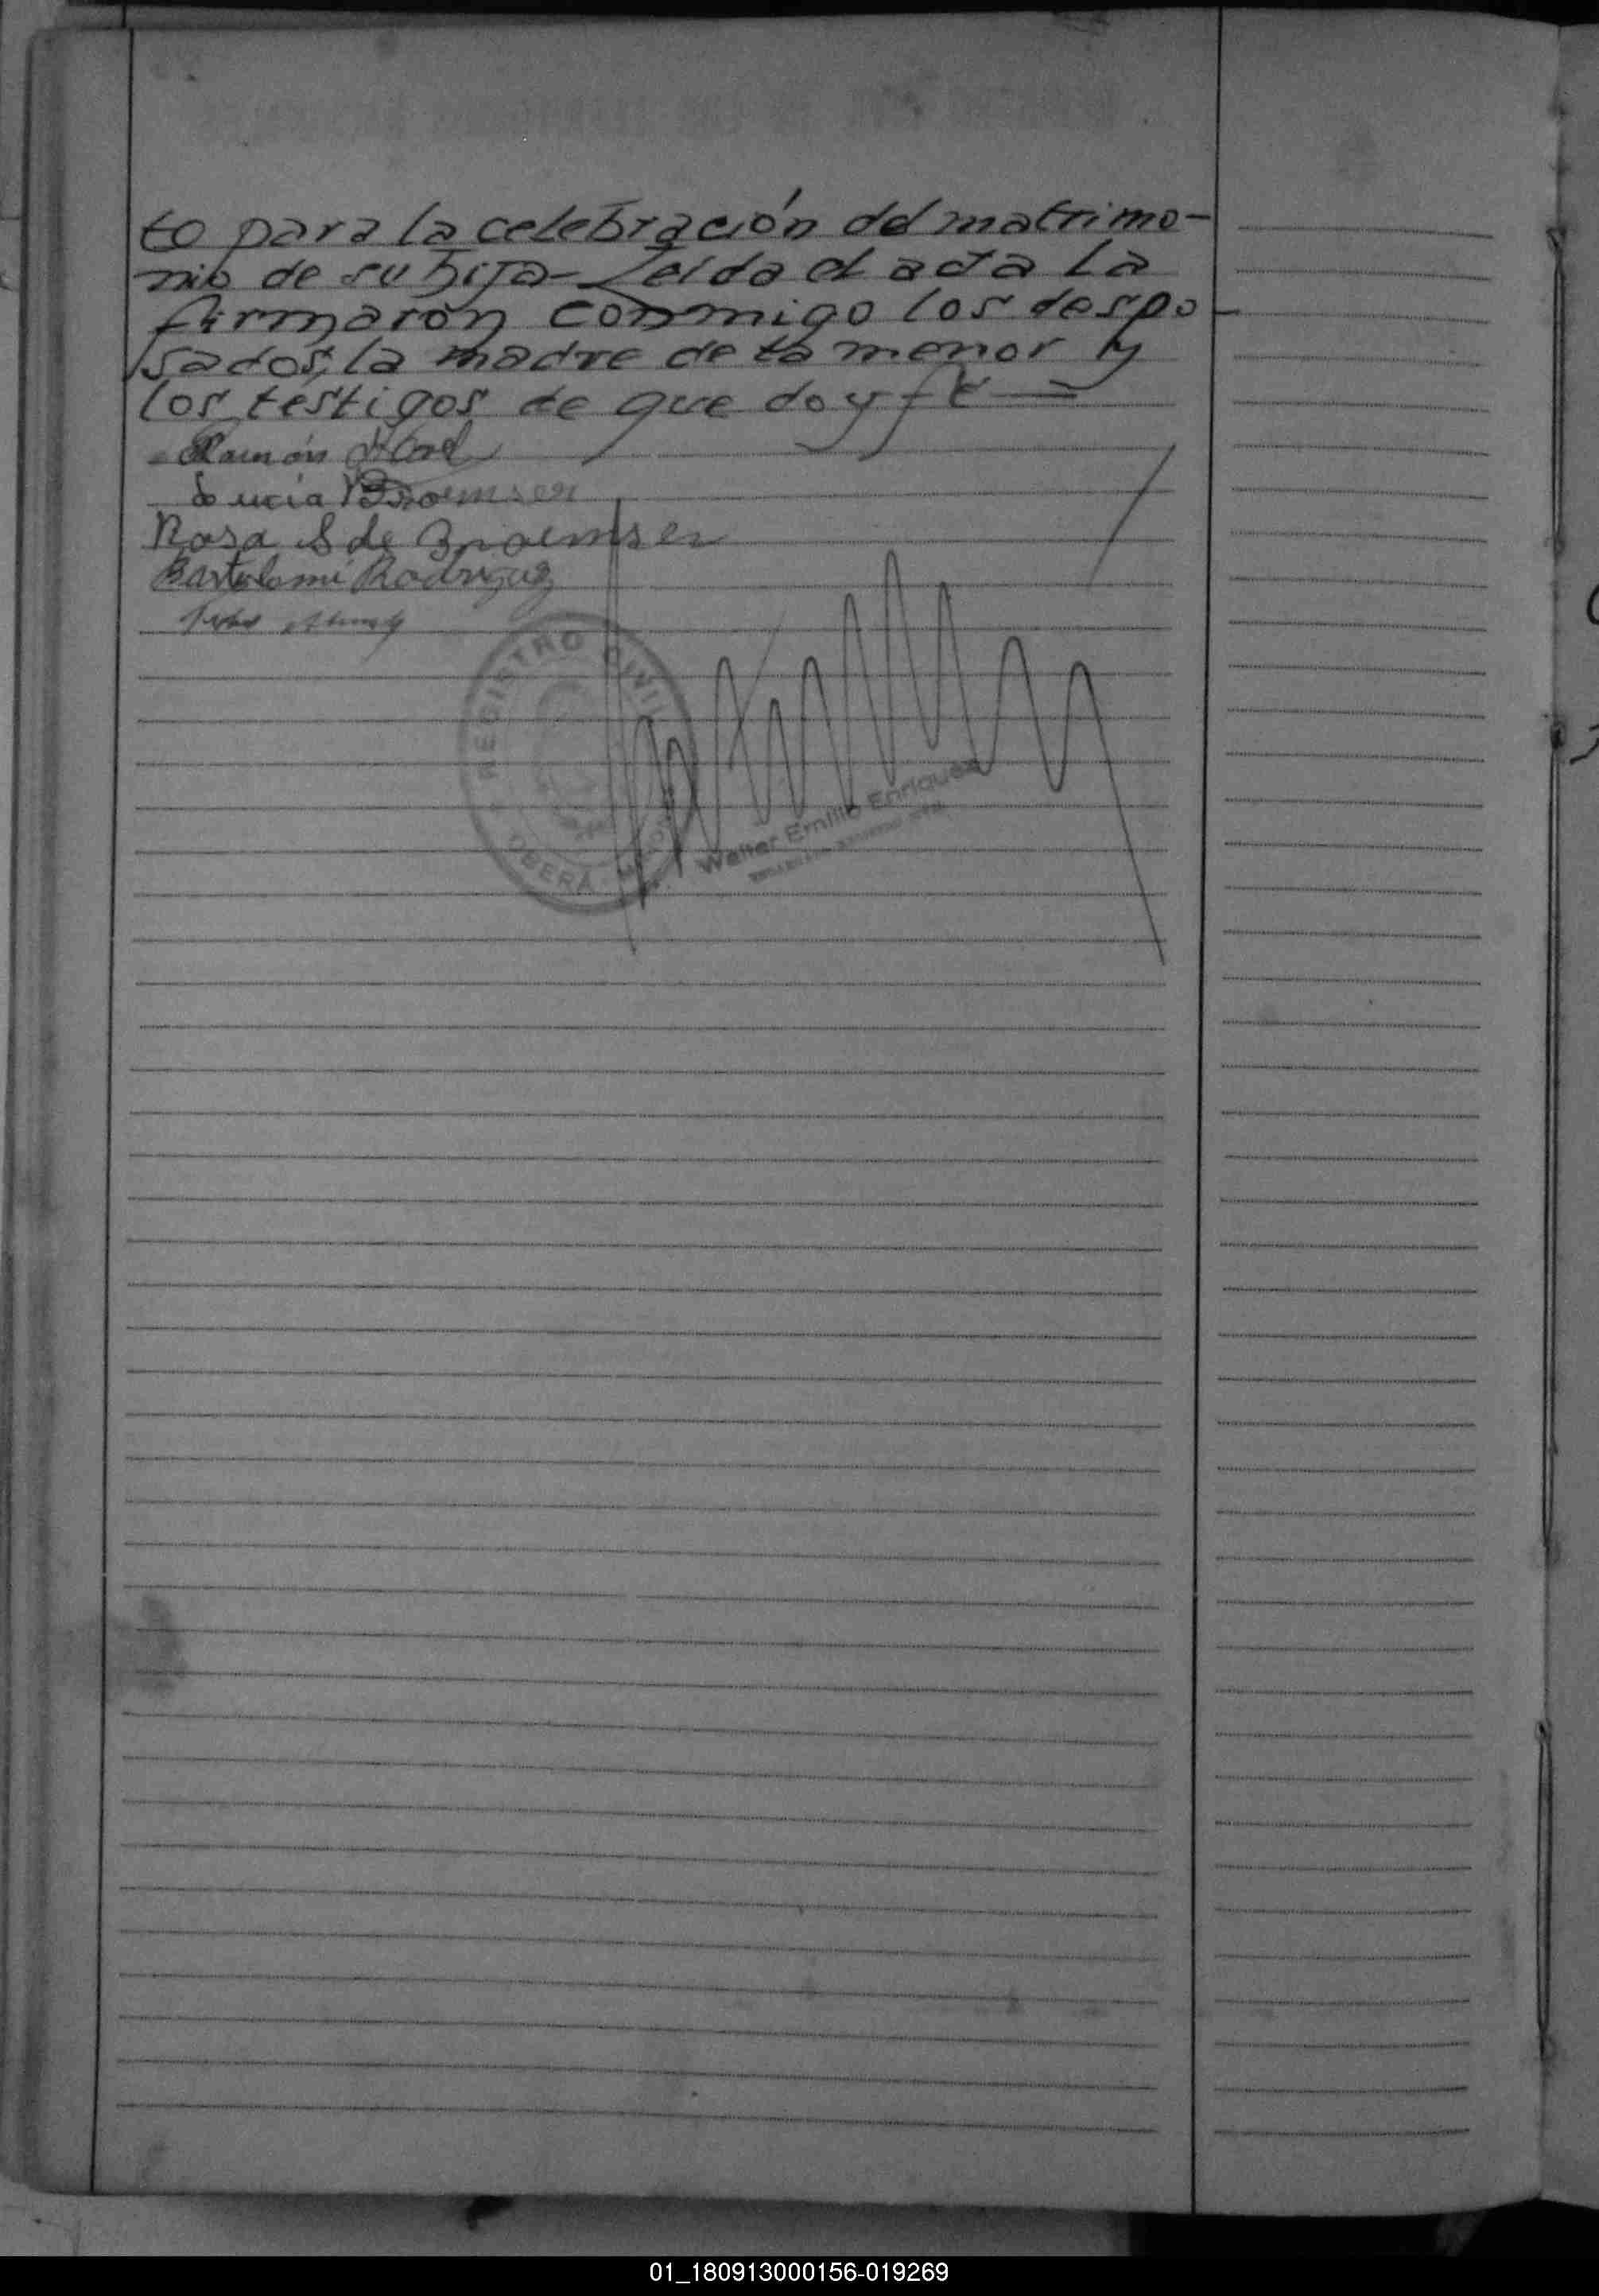 to para la celebración del matrimo-
nio de su hija- Leída el acta la
firmaron conmigo los despo-
sados, la madre de la menor y
los testigos de que doy fé =
Ramón
Lucia Broemser
Rosa S de Broemser
Bartolomé Rodriguez
REGISTRO CIVIL
OBERÁ MISIONES
Walter Emilio Enriquez
01_180913000156-019269